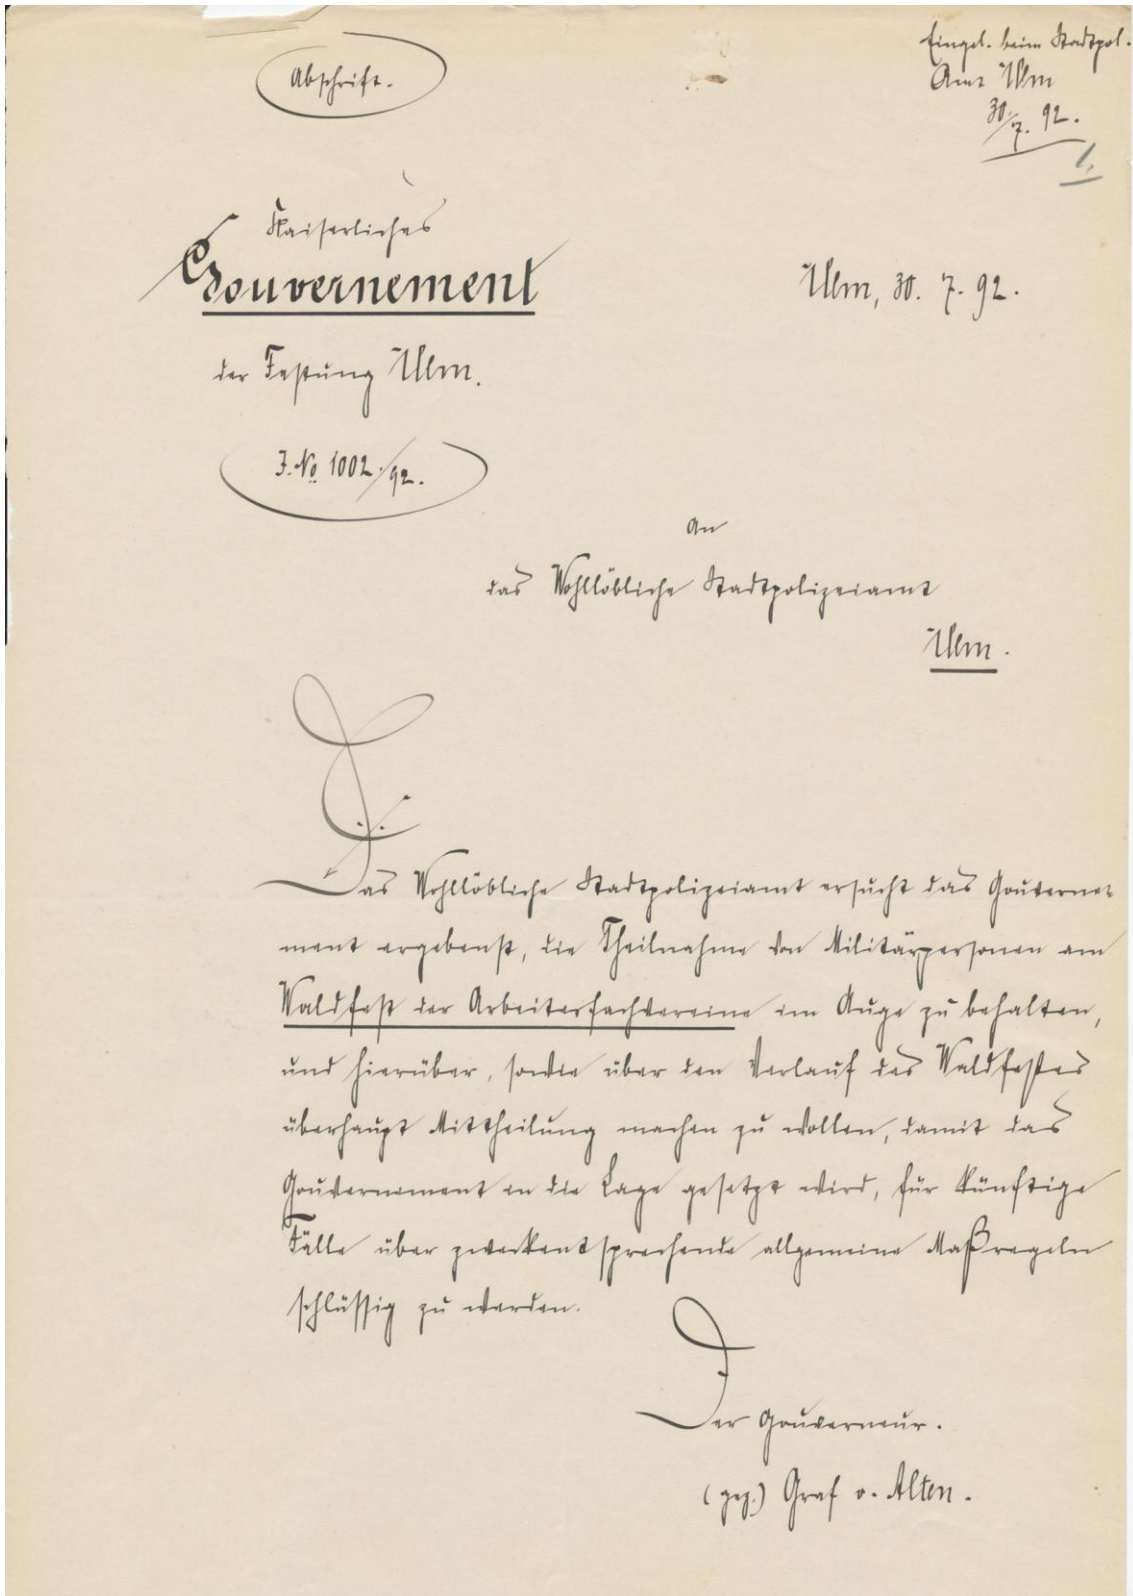 Abschrift.
Eingel. beim Stadtpol.
Amt Ulm
30/7. 92.
1.
Kaiserliches
Gouvernement
der Festung Ulm.
Ulm, 30. 7. 92.
J. No 1002./92.
An
das Wohllöbliche Stadtpolizeiamt
Ulm.
Das Wohllöbliche Stadtpolizeiamt ersucht das Gouverne-
ment ergebenst, die Theilnahme von Militärpersonen am
Waldfest der Arbeiterfachvereine im Auge zu behalten,
und hierüber, sowie über den Verlauf des Waldfestes
überhaupt Mittheilung machen zu wollen, damit das
Gouvernement in die Lage gesetzt wird, für künftige
Fälle über zweckentsprechende allgemeine Maßregeln
schlüssig zu werden.
Der Gouverneur.
(gez.) Graf v. Alten.